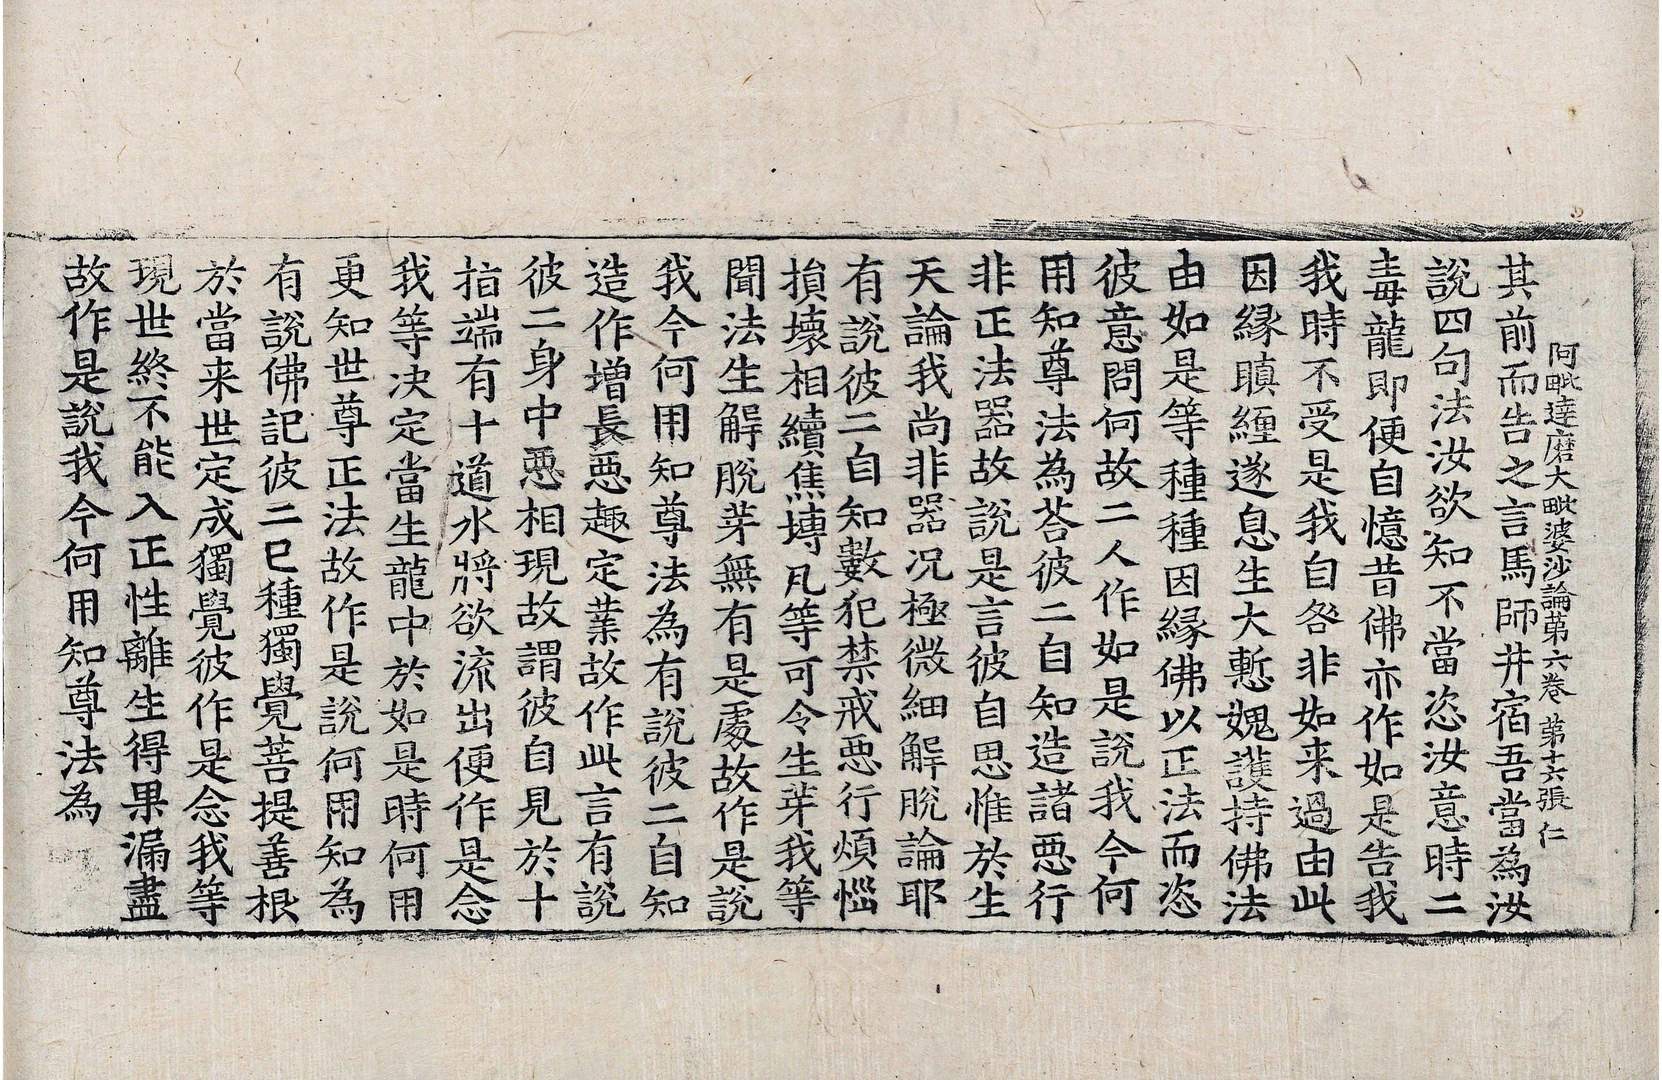 阿毗達磨大毗婆沙論第六卷 第十六張 仁
其前而告之言馬師井宿吾當為汝
說四句法汝欲知不當恣汝意時二
毒龍即便自憶昔佛亦作如是告我
我時不受是我自咎非如来過由此
因縁瞋纏遂息生大慙愧護持佛法
由如是等種種因縁佛以正法而恣
彼意問何故二人作如是說我今何
用知尊法為荅彼二自知造諸惡行
非正法器故說是言彼自思惟於生
天論我尚非器况極微細解脫論耶
有說彼二自知數犯禁戒惡行煩惱
損壞相續焦塼凡等可令生芽我等
聞法生解脫芽無有是處故作是說
我今何用知尊法為有說彼二自知
造作增長惡趣定業故作此言有說
彼二身中惡相現故謂彼自見於十
指端有十道水將欲流出便作是念
我等决定當生龍中於如是時何用
更知世尊正法故作是說何用知為
有說佛記彼二已種獨覺菩提善根
於當来世定成獨覺彼作是念我等
現世終不能入正性離生得果漏盡
故作是說我今何用知尊法為